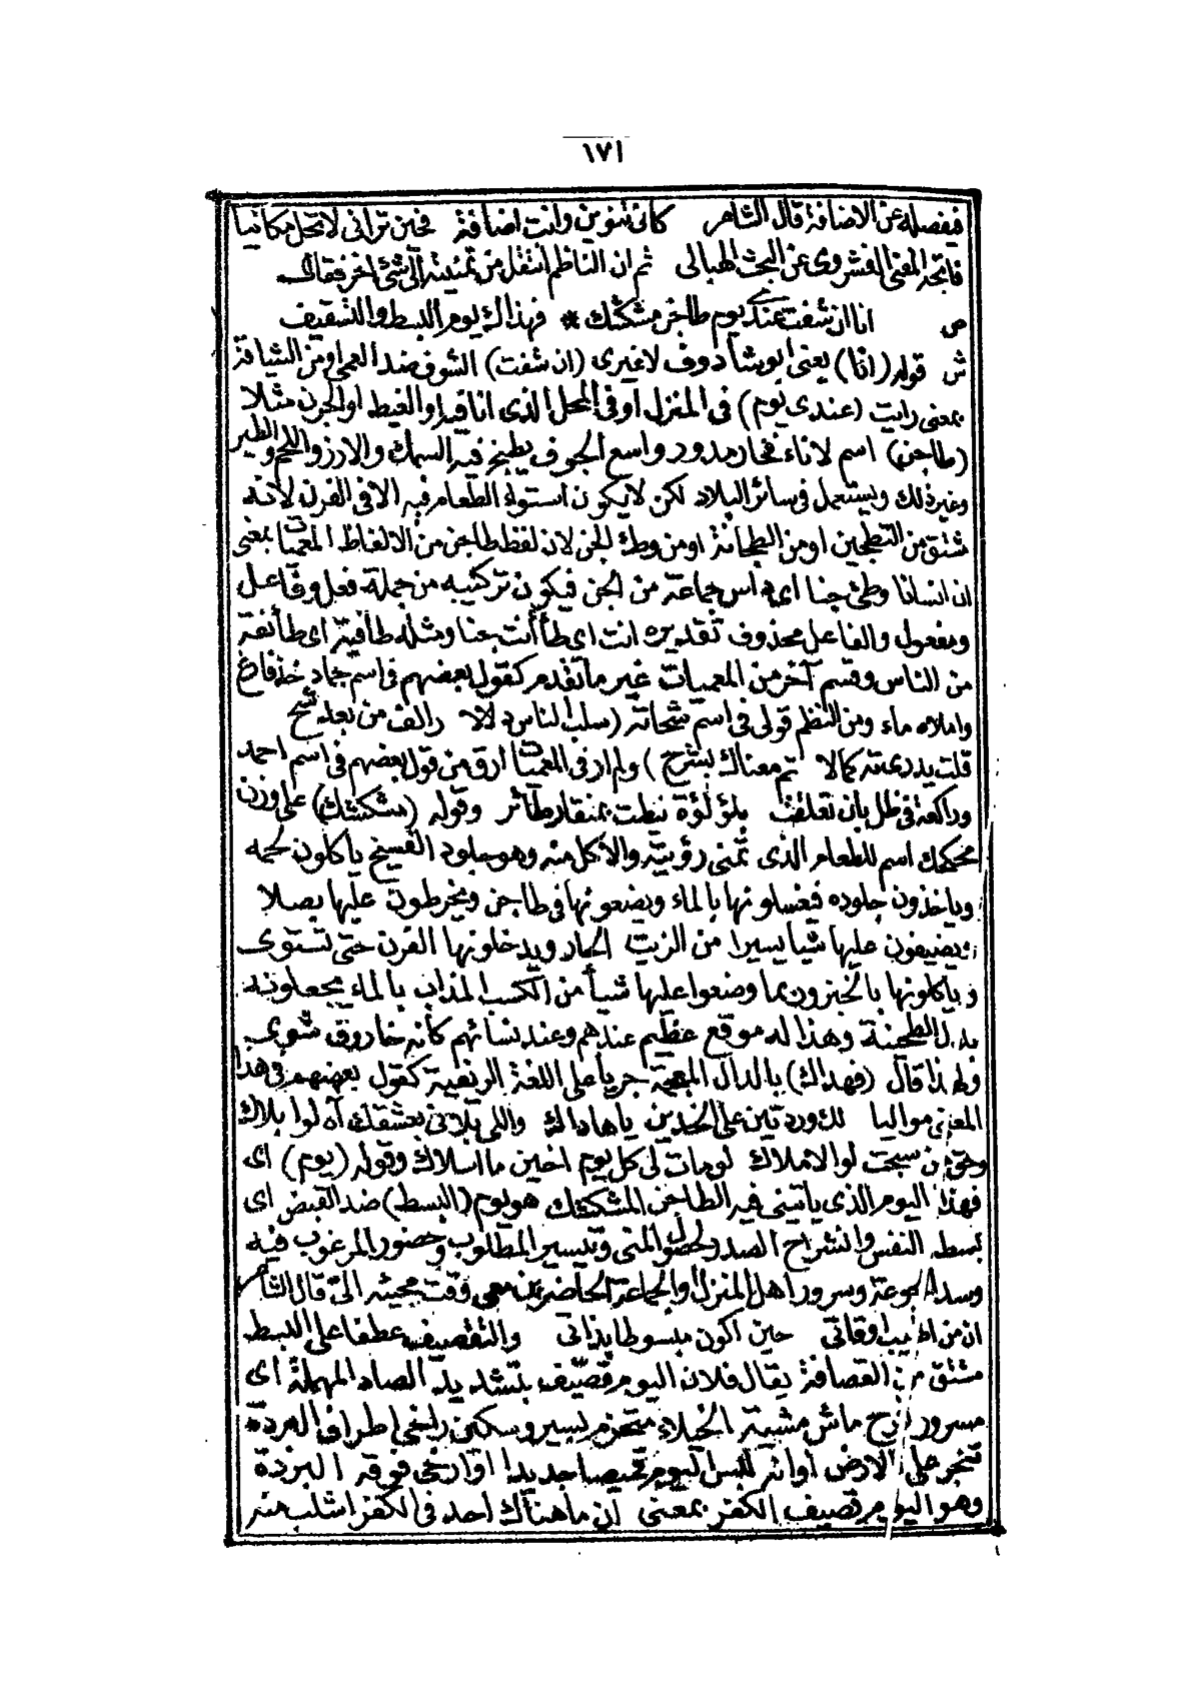 ١٧١
فيفصله عن الاضافة قال الشاعر كانى تنوين وانت اضافة فحين ترانى لا تحل مكانيا
فاتجه المعنى الفشروى عن البحث الهبالى ثم ان الناظم انتقل من تمنيته الى شئ اخر فقال
ص انا ان شفت عندى يوم طاجن مشكشك * فهذاك يوم البسط والتقصيف
ش قوله (انا) يعنى ابو شادوف لا غيرى (ان شفت) الشوف ضد العمى او من الشيافة
بمعنى رايت (عندى يوم) فى المنزل او فى المحل الذى انا فيه او الغيط او الجرن مثلا
(طاجن) اسم لاناء فخار مدور واسع الجوف يطبخ فيه السمك والارز واللحم والطير
وغير ذلك ويستعمل فى سائر البلاد لكن لا يكون استواء الطعام فيه الا فى الفرن لانه
مشتق من التطجين او من الطجانة او من وطئ الجن لان لفظ طاجن من الالفاظ المعميات بمعنى
ان انسانا وطئ جنا اى داس جماعة من الجن فيكون تركيبه من جملة فعل وفاعل
ومفعول والفاعل محذوف تقديره انت اى طأ أنت جنا ومثله طافية اى طأ ئفة
من الناس وقسم آخر من المعميات غير ما تقدم كقول بعضهم فى اسم جاد خذ فاغ
واملاه ماء ومن النظم قولى فى اسم شحاتة (سلب الناس دلالا رالف من بعد شح
قلت يدرى ته كمالا تم معناك بشرح) ولم ار فى المعميات ارق من قول بعضهم فى اسم احمد
وراكعة فى ظل بان تعلقت بلؤلؤة نيطت بمنقار طائر وقوله (مشكشك) على وزن
محكحك اسم للطعام الذى تمنى رؤيته والاكل منه وهو جلود الفسيخ ياكلون لحمه
وياخذون جلوده فيغسلونها بالماء ويضعونها فى طاجن ويخرطون عليها بصلا
ويضيفون عليها شيا يسيرا من الزيت الحار ويدخلونها الفرن حتى تستوى
وياكلونها بالخبز وربما وضعوا عليها شيأ من الكسب المذاب بالماء يجعلونه
بدل الطحينة وهذا له موقع عظيم عندهم وعند نسائهم كانه خاروف شوى
ولهذا قال (فهذاك) بالذال المعجمة جريا على اللغة الريفية كقول بعضهم فى هذا
المعنى مواليا لك وردتين على الخدين ياهاداك واللى بلانى بعشقك آه لو ابلاك
وحق من سبحت لو الاملاك لو مات لى كل يوم اخين ما اسلاك وقوله (يوم) اى
فهذا اليوم الذى ياتينى فيه الطاجن المشكشك هو يوم (البسط) ضد القبض اى
بسط النفس وانشراح الصدر لحصول المنى وتيسير المطلوب وحضور المرغوب فيه
وسد الجوعة وسرور اهل المنزل والجماعة الحاضرين معى وقت مجيئه الى قال الشاعر
ان من اطيب اوقاتى حين اكون مبسوطا بذاتى والتقصيف عطفا على البسط
مشتق من القصافة يقال فلان اليوم قصّيف بتشديد الصاد المهملة اى
مسرور فرح ماش مشية الخيلاء متحزم بسير وسكين راخى اطراف البردة
تنجر على الارض او انه لبس اليوم قميصا جديدا او ارخى فوقه البردة
وهو اليوم قصيف الكفر بمعنى ان ما هناك احد فى الكفر اشلب منه